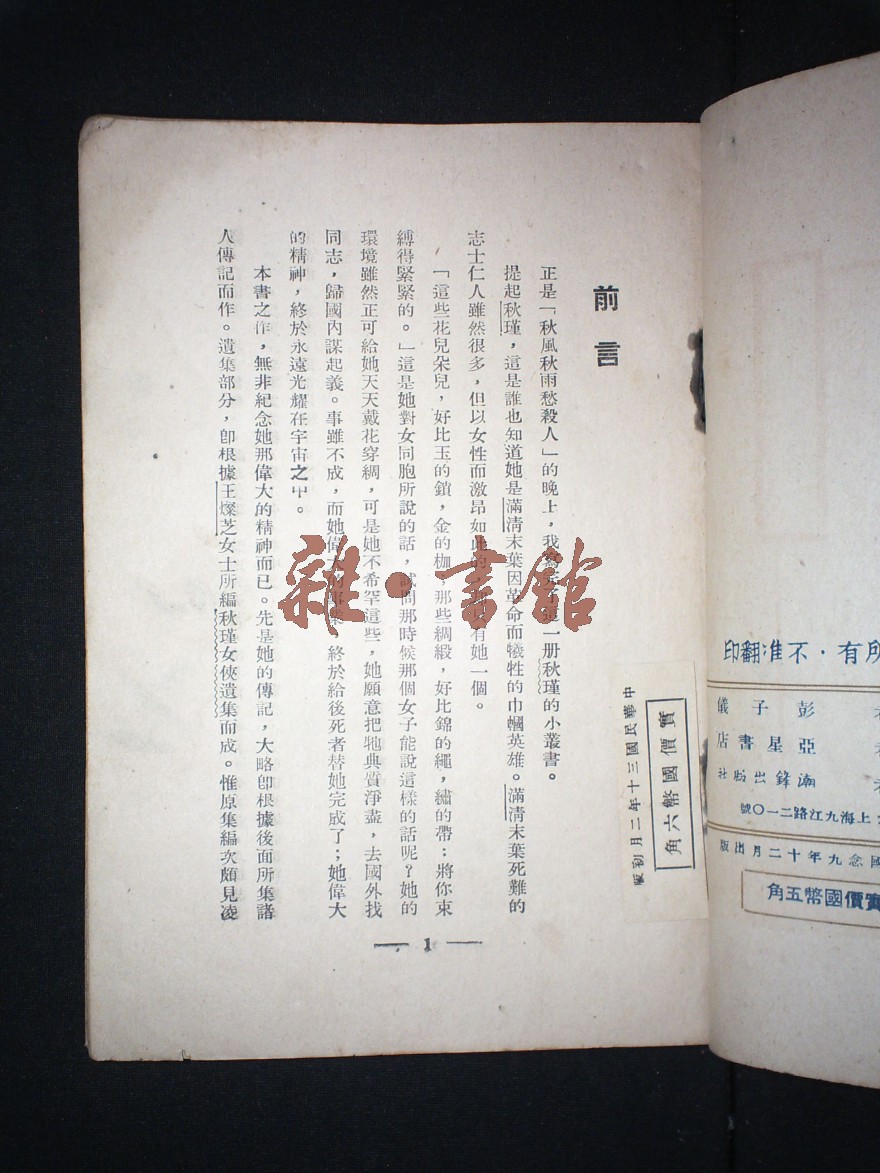 前言
正是「秋風秋雨愁殺人」的晚上，我寫一册秋瑾的小叢書。
提起秋瑾，這是誰也知道她是滿淸末葉因革命而犧牲的巾幗英雄。滿淸末葉死難的
志士仁人雖然很多，但以女性而激昂如此的有她一個。
「這些花兒朵兒，好比玉的鎖，金的枷，那些綢緞，好比錦的繩，繡的帶：將你束
縛得緊緊的。」這是她對女同胞所說的話，試問那時候那個女子能說這樣的話呢？她的
環境雖然正可給她天天戴花穿綢，可是她不希罕這些，她願意把牠典質淨盡，去國外找
同志，歸國內謀起義。事雖不成，而她偉大的終於給後死者替她完成了；她偉大
的精神，終於永遠光耀在宇宙之中。
本書之作，無非紀念她那偉大的精神而已。先是她的傳記，大略卽根據後面所集諸
人傳記而作。遺集部分，卽根據王燦芝女士所編秋瑾女俠遺集而成。惟原集編次頗見凌
— 1 —
中華民國三十年二月初版
實價國幣六角
所有·不准翻印
彭子儀
亞星書店
潮鋒出版社
上海九江路二一〇號
國念九年十二月出版
實價國幣五角
雜·書館